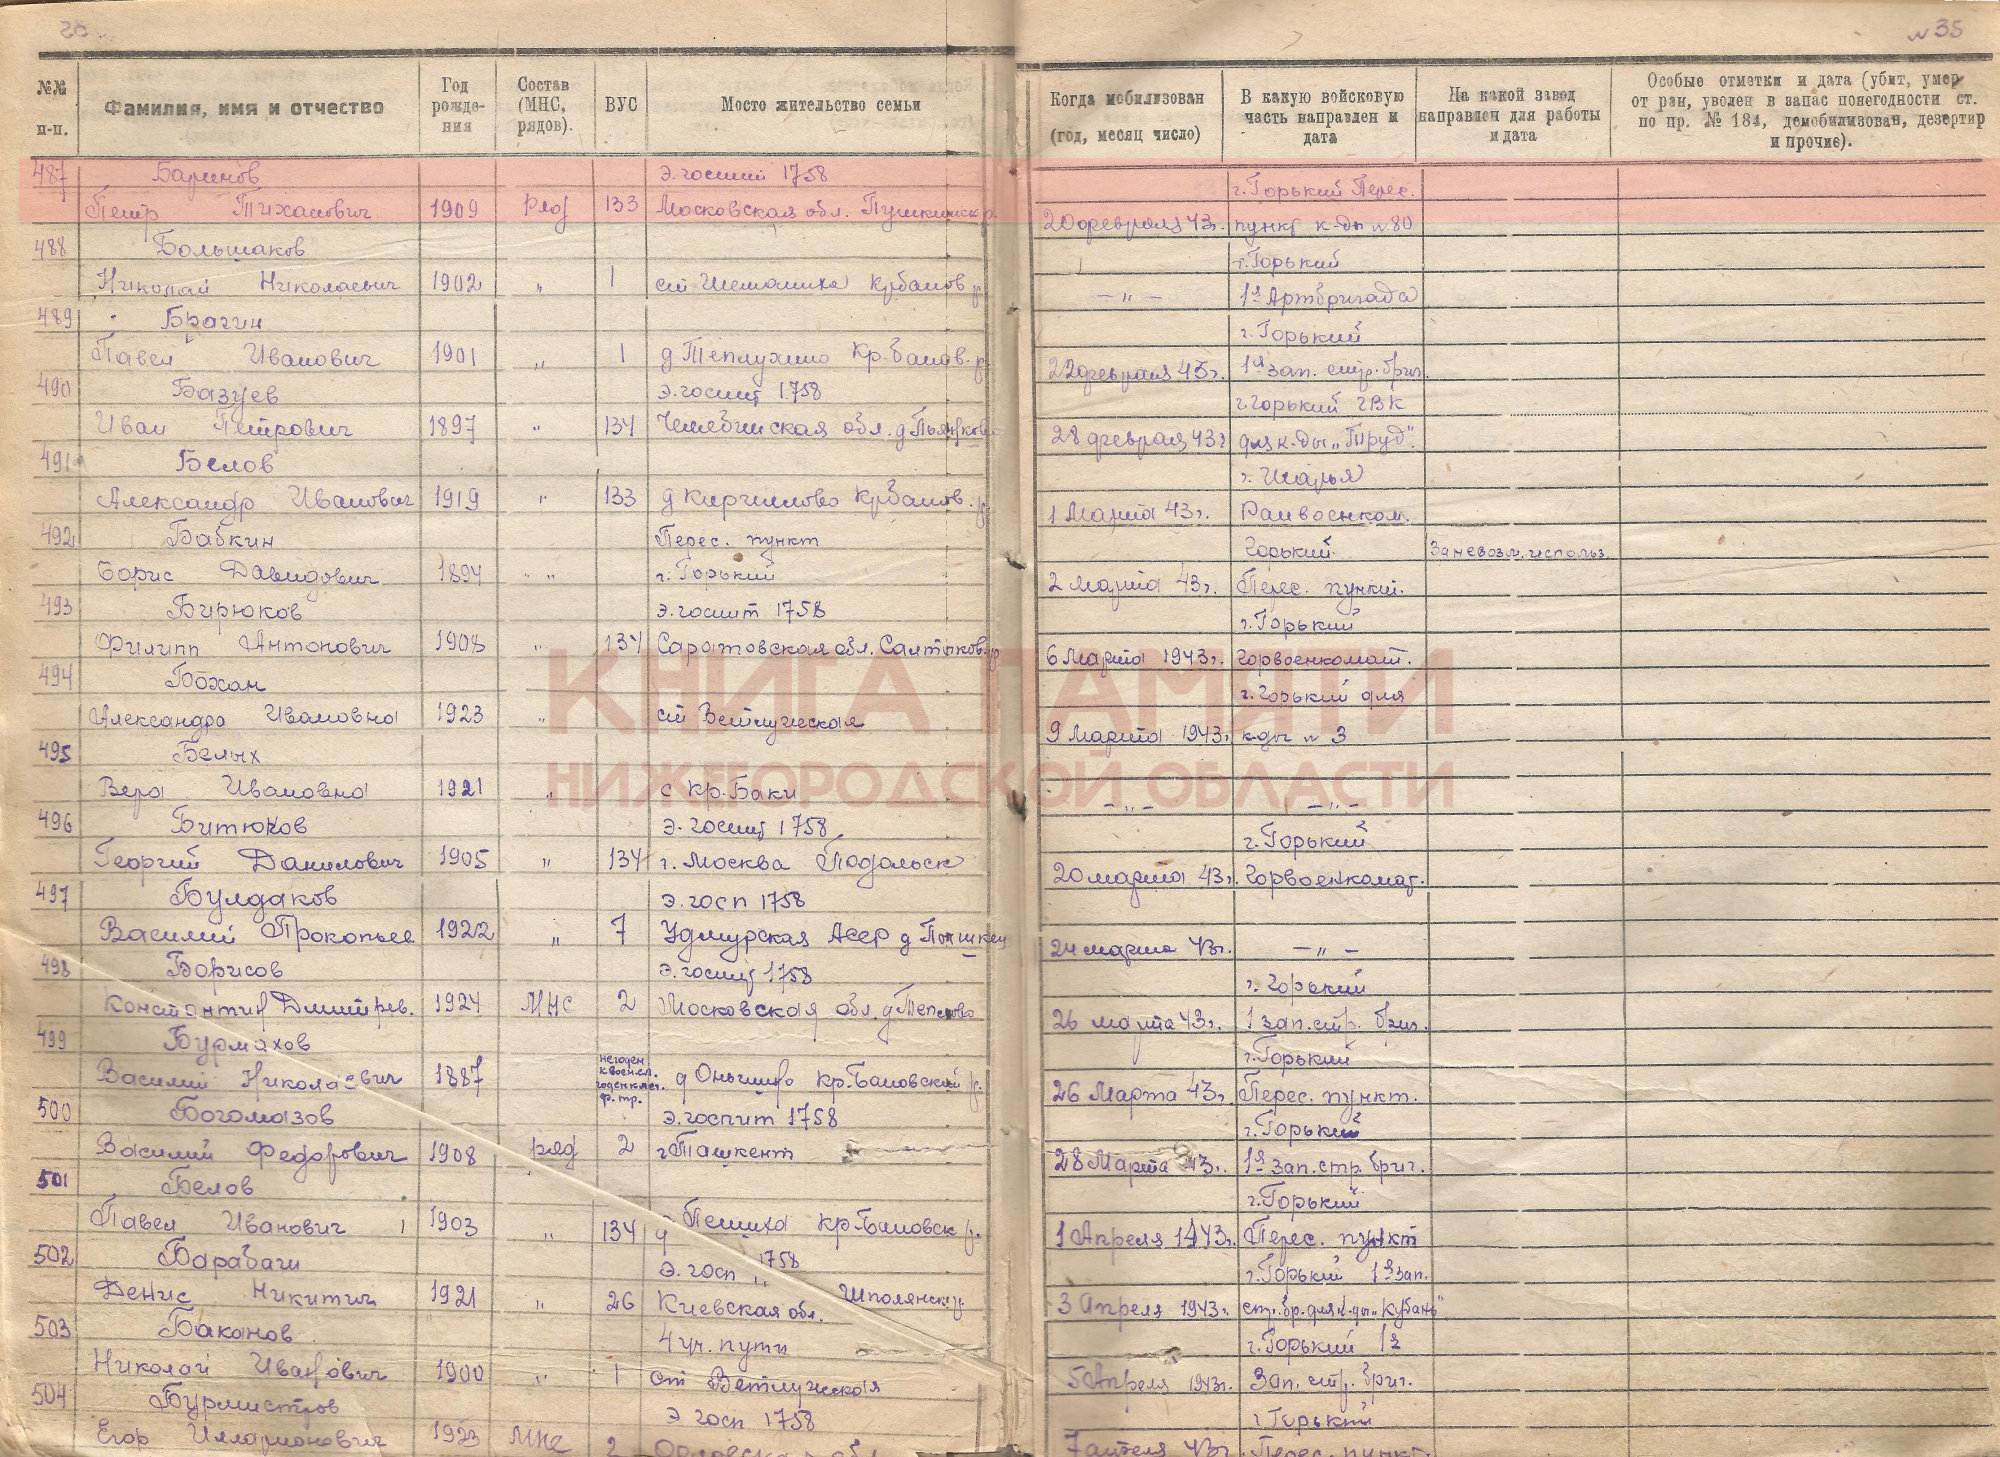 № 35
№№ п-п.
Фамилия, имя и отчество
Год рожде-ния
Состав (МНС, рядов).
ВУС
Мосто жительство семьи
Когда мобилизован (год, месяц число)
В какую войсковую часть направлен и дата
На какой завод направлен для работы и дата
Особые отметки и дата (убит, умер от ран, уволен в запас понегодности ст. по пр. № 184, демобилизован, дезертир и прочие).
487 Баринов э. госпит 1758 г. Горький Перес.
Петр Тихонович 1909 Ряд 133 Московская обл. Пушкинск р. 20 февраля 43г. пункт к-ды №80
488 Большаков г. Горький
Николай Николаевич 1902 „ 1 ст Шеманиха Кр баков р — „ — 1я Артбригада
489 Брагин г. Горький
Павел Иванович 1901 „ 1 д Теплухино Кр-баков. р. 22 февраля 43г. 1я зап. стр. бриг.
490 Базуев э. госпит 1758 г. Горький ГВК
Иван Петрович 1897 „ 134 Челябинская обл. д 28 февраля 43г для к-ды „Труд".
491 Белов г. Шарья
Александр Иванович 1919 „ 133 д Кириллово Кр баков. р. 1 Марта 43г. Райвоенком.
492 Бабкин Перес. пункт Горький Заневозм. использ.
Борис Давидович 1894 „ г. Горький 2 марта 43г. Перес. пункт.
493 Бирюков э. госпит 1758 г. Горький
Филипп Антонович 1908 „ 134 Саратовская обл. Салтыков. р 6 Марта 1943г. Горвоенкомат.
494 Бохан г. Горький для
Александра Ивановна 1923 „ ст Ветлужская 9 Марта 1943г к-ды № 3
495 Белых
Вера Ивановна 1921 „ с Кр. Баки — „ — — „ —
496 Битюков э. госпит 1758 г. Горький
Георгий Данилович 1905 „ 134 г. Москва Подольск 20 марта 43г. Горвоенкомат.
497 Булдаков э. госп 1758
Василий Прокопьев 1922 „ 7 Удмурская Асср д 24 марта 43г. — „ —
498 Борисов э. госпит 1758 г. Горький
Константин Дмитрев. 1924 МНС 2 Московская обл. д 26 марта 43г. 1 зап. стр. бриг.
499 Бурмахов негоден к воен.сл. годен к лег. ф. тр. г. Горький
Василий Николаевич 1887 д Кр. Баковский р. 26 Марта 43г. Перес. пункт.
500 Богомазов э. госпит 1758 г. Горький
Василий Федорович 1908 ряд 2 г Ташкент 28 Марта 43г. 1я зап. стр. бриг.
501 Белов г. Горький
Павел Иванович 1903 „ 134 д Пешиха Кр. Баковск р. 1 Апреля 1943г. Перес. пункт
502 Барабаш э. госп 1758 г. Горький 1я зап.
Денис Никитич 1921 „ 26 Киевская обл. Шполянск р. 3 Апреля 1943г. стр. бр. для к-ды „Кубань"
503 Баканов 4 уч. пути г. Горький 1я
Николай Иванович 1900 „ 1 ст Ветлужская 5 Апреля 1943г. Зап. стр. бриг.
504 Бурмистров э госп 1758 г Горький
Егор Илларионович 1923 МНС 2 Орловская обл. 7 апреля 43г. Перес. пункт.
КНИГА ПАМЯТИ
НИЖЕГОРОДСКОЙ ОБЛАСТИ